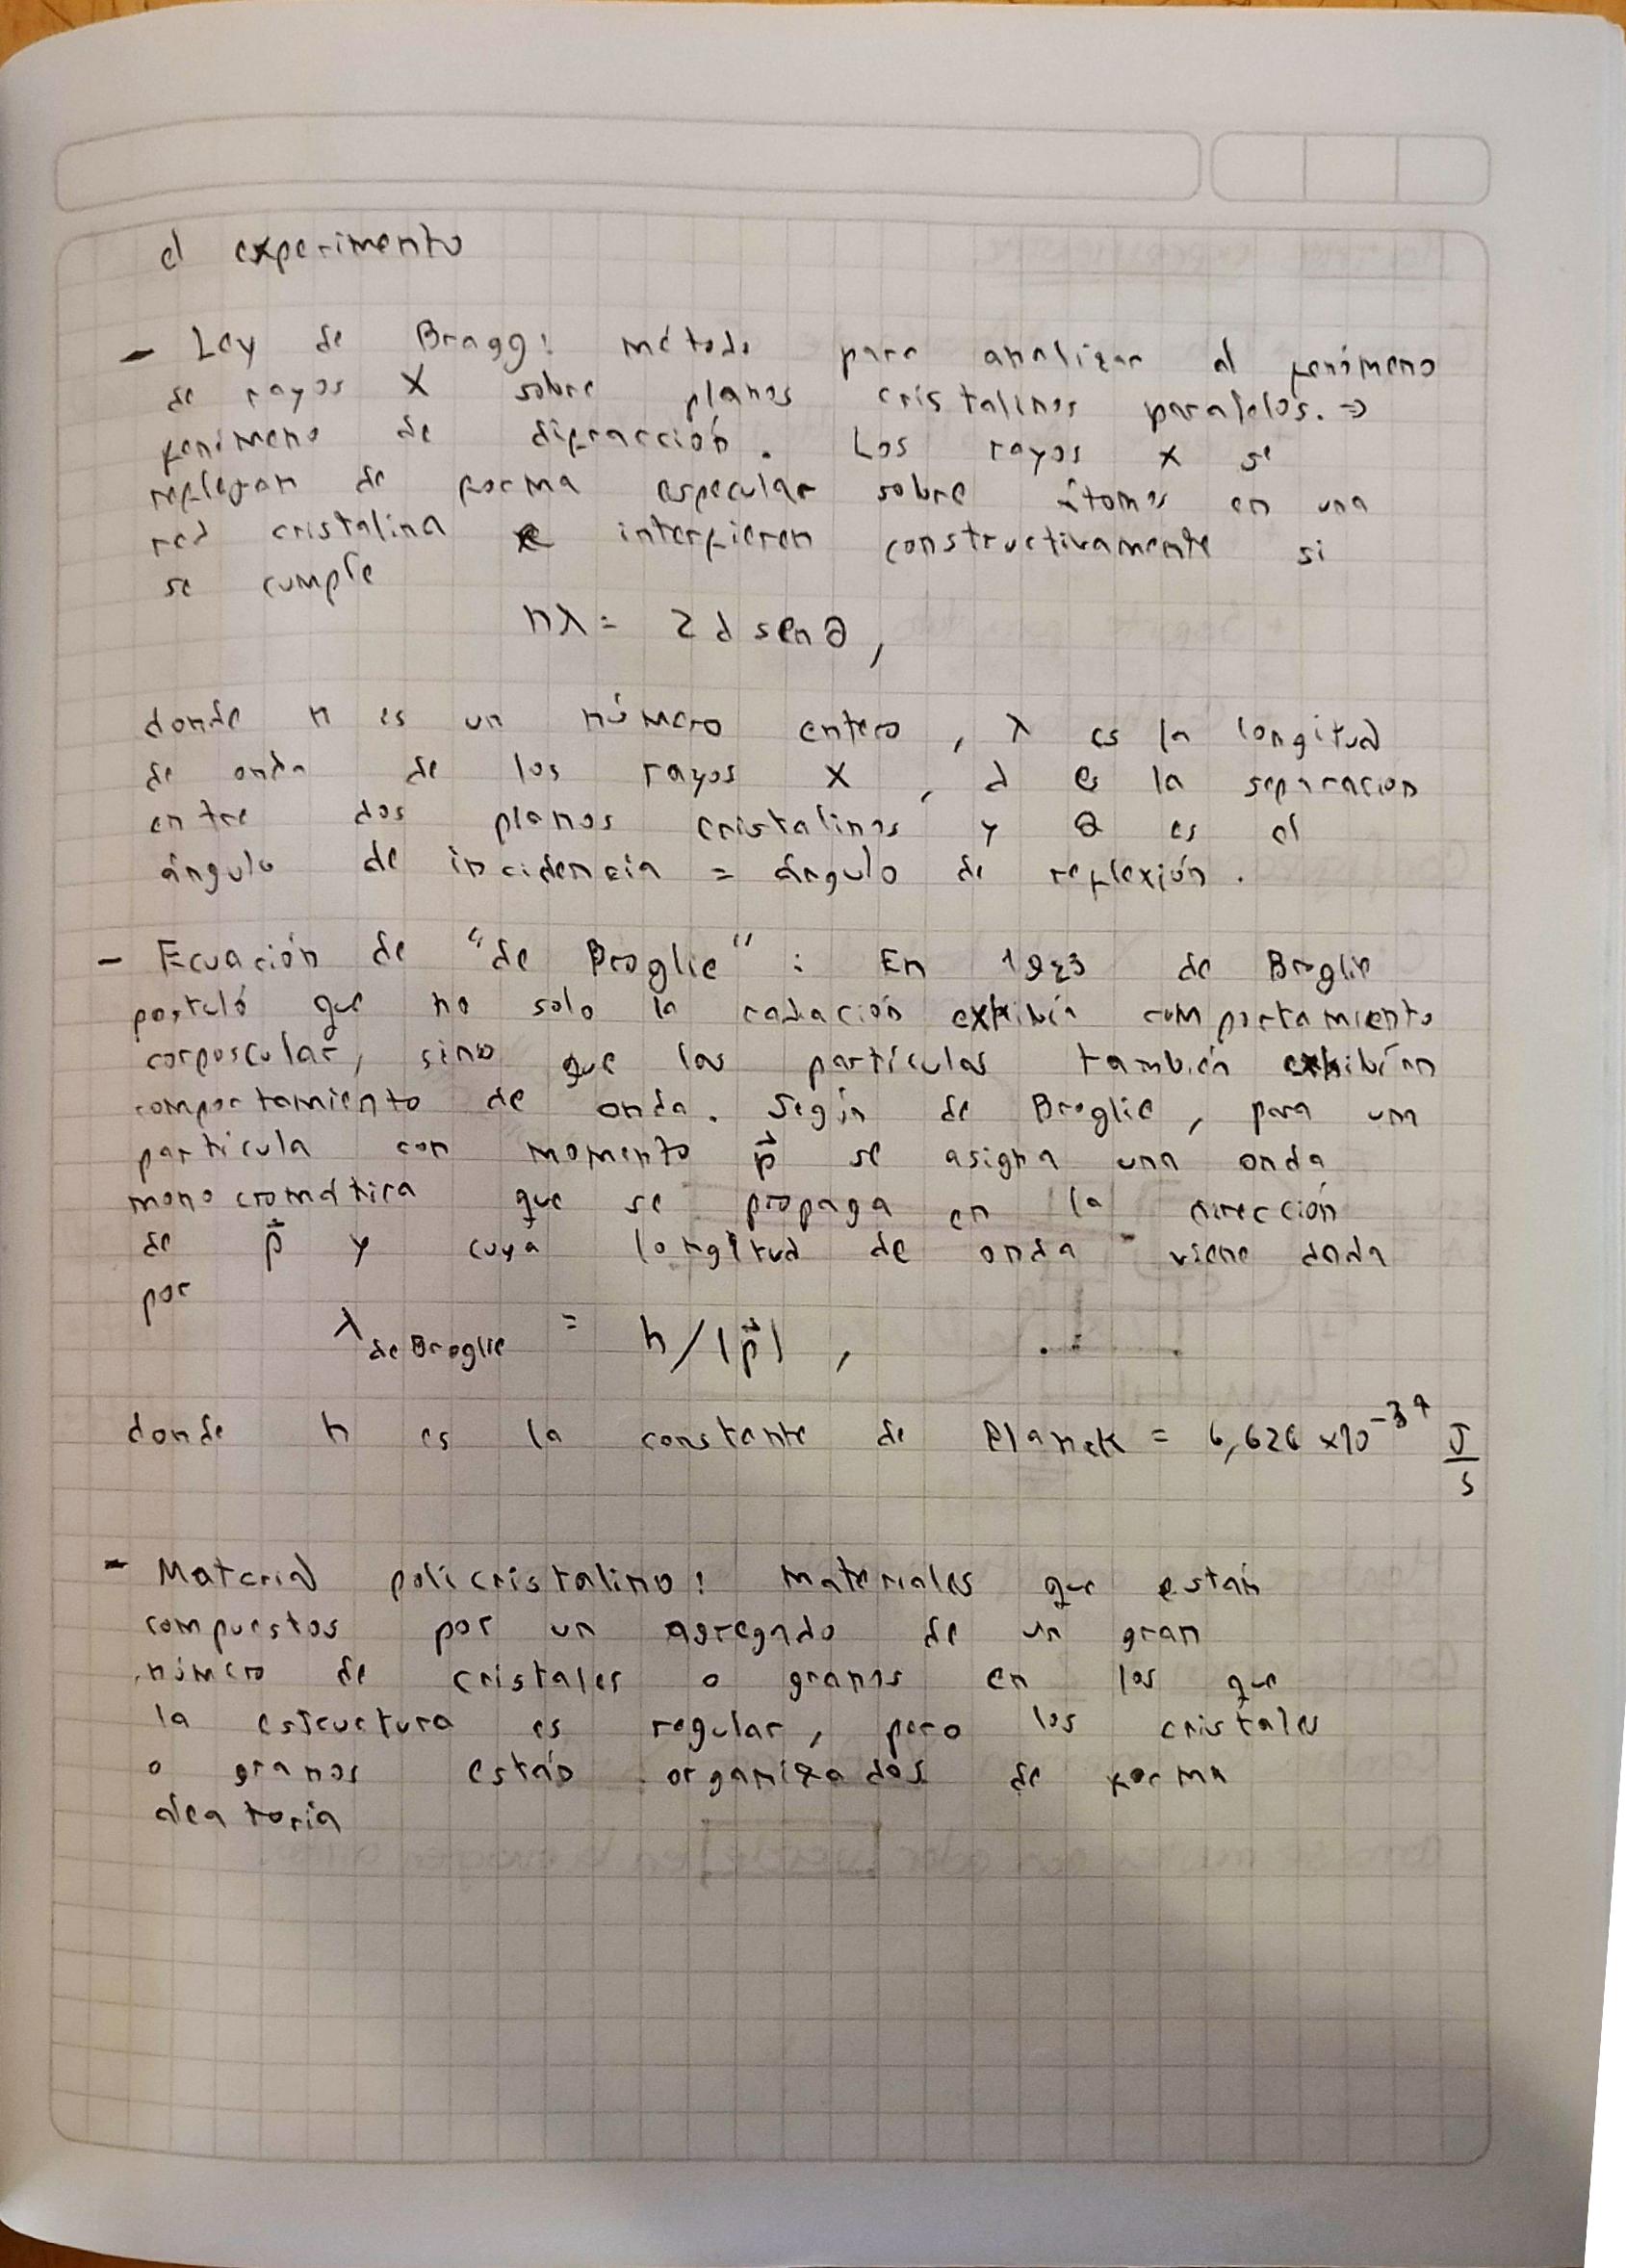 el experimento
- Ley de Bragg: método para analizar el fenómeno
de rayos X sobre planos cristalinos paralelos. ⇒
fenómeno de difracción. Los rayos x se
reflejan de forma especular sobre átomos en una
red cristalina e interfieren constructivamente si
se cumple
nλ = 2 d sen θ,
donde n es un número entero, λ es la longitud
de onda de los rayos X, d es la separacion
entre dos planos cristalinos y θ es el
ángulo de incidencia = ángulo de reflexión.
- Ecuación de "de Broglie": En 1923 de Broglie
postuló que no solo la radiación exhibía comportamiento
corpuscular, sino que las partículas también exhibían
comportamiento de onda. Según de Broglie, para una
partícula con momento p⃗ se asigna una onda
monocromática que se propaga en la dirección
de p⃗ y cuya longitud de onda viene dada
por
λ de Broglie = h/|p⃗|,
donde h es la constante de Planck = 6,626 x10⁻³⁴ J/s
- Material policristalino: materiales que están
compuestos por un agregado de un gran
número de cristales o granos en los que
la estructura es regular, pero los cristales
o granos están organizados de forma
aleatoria